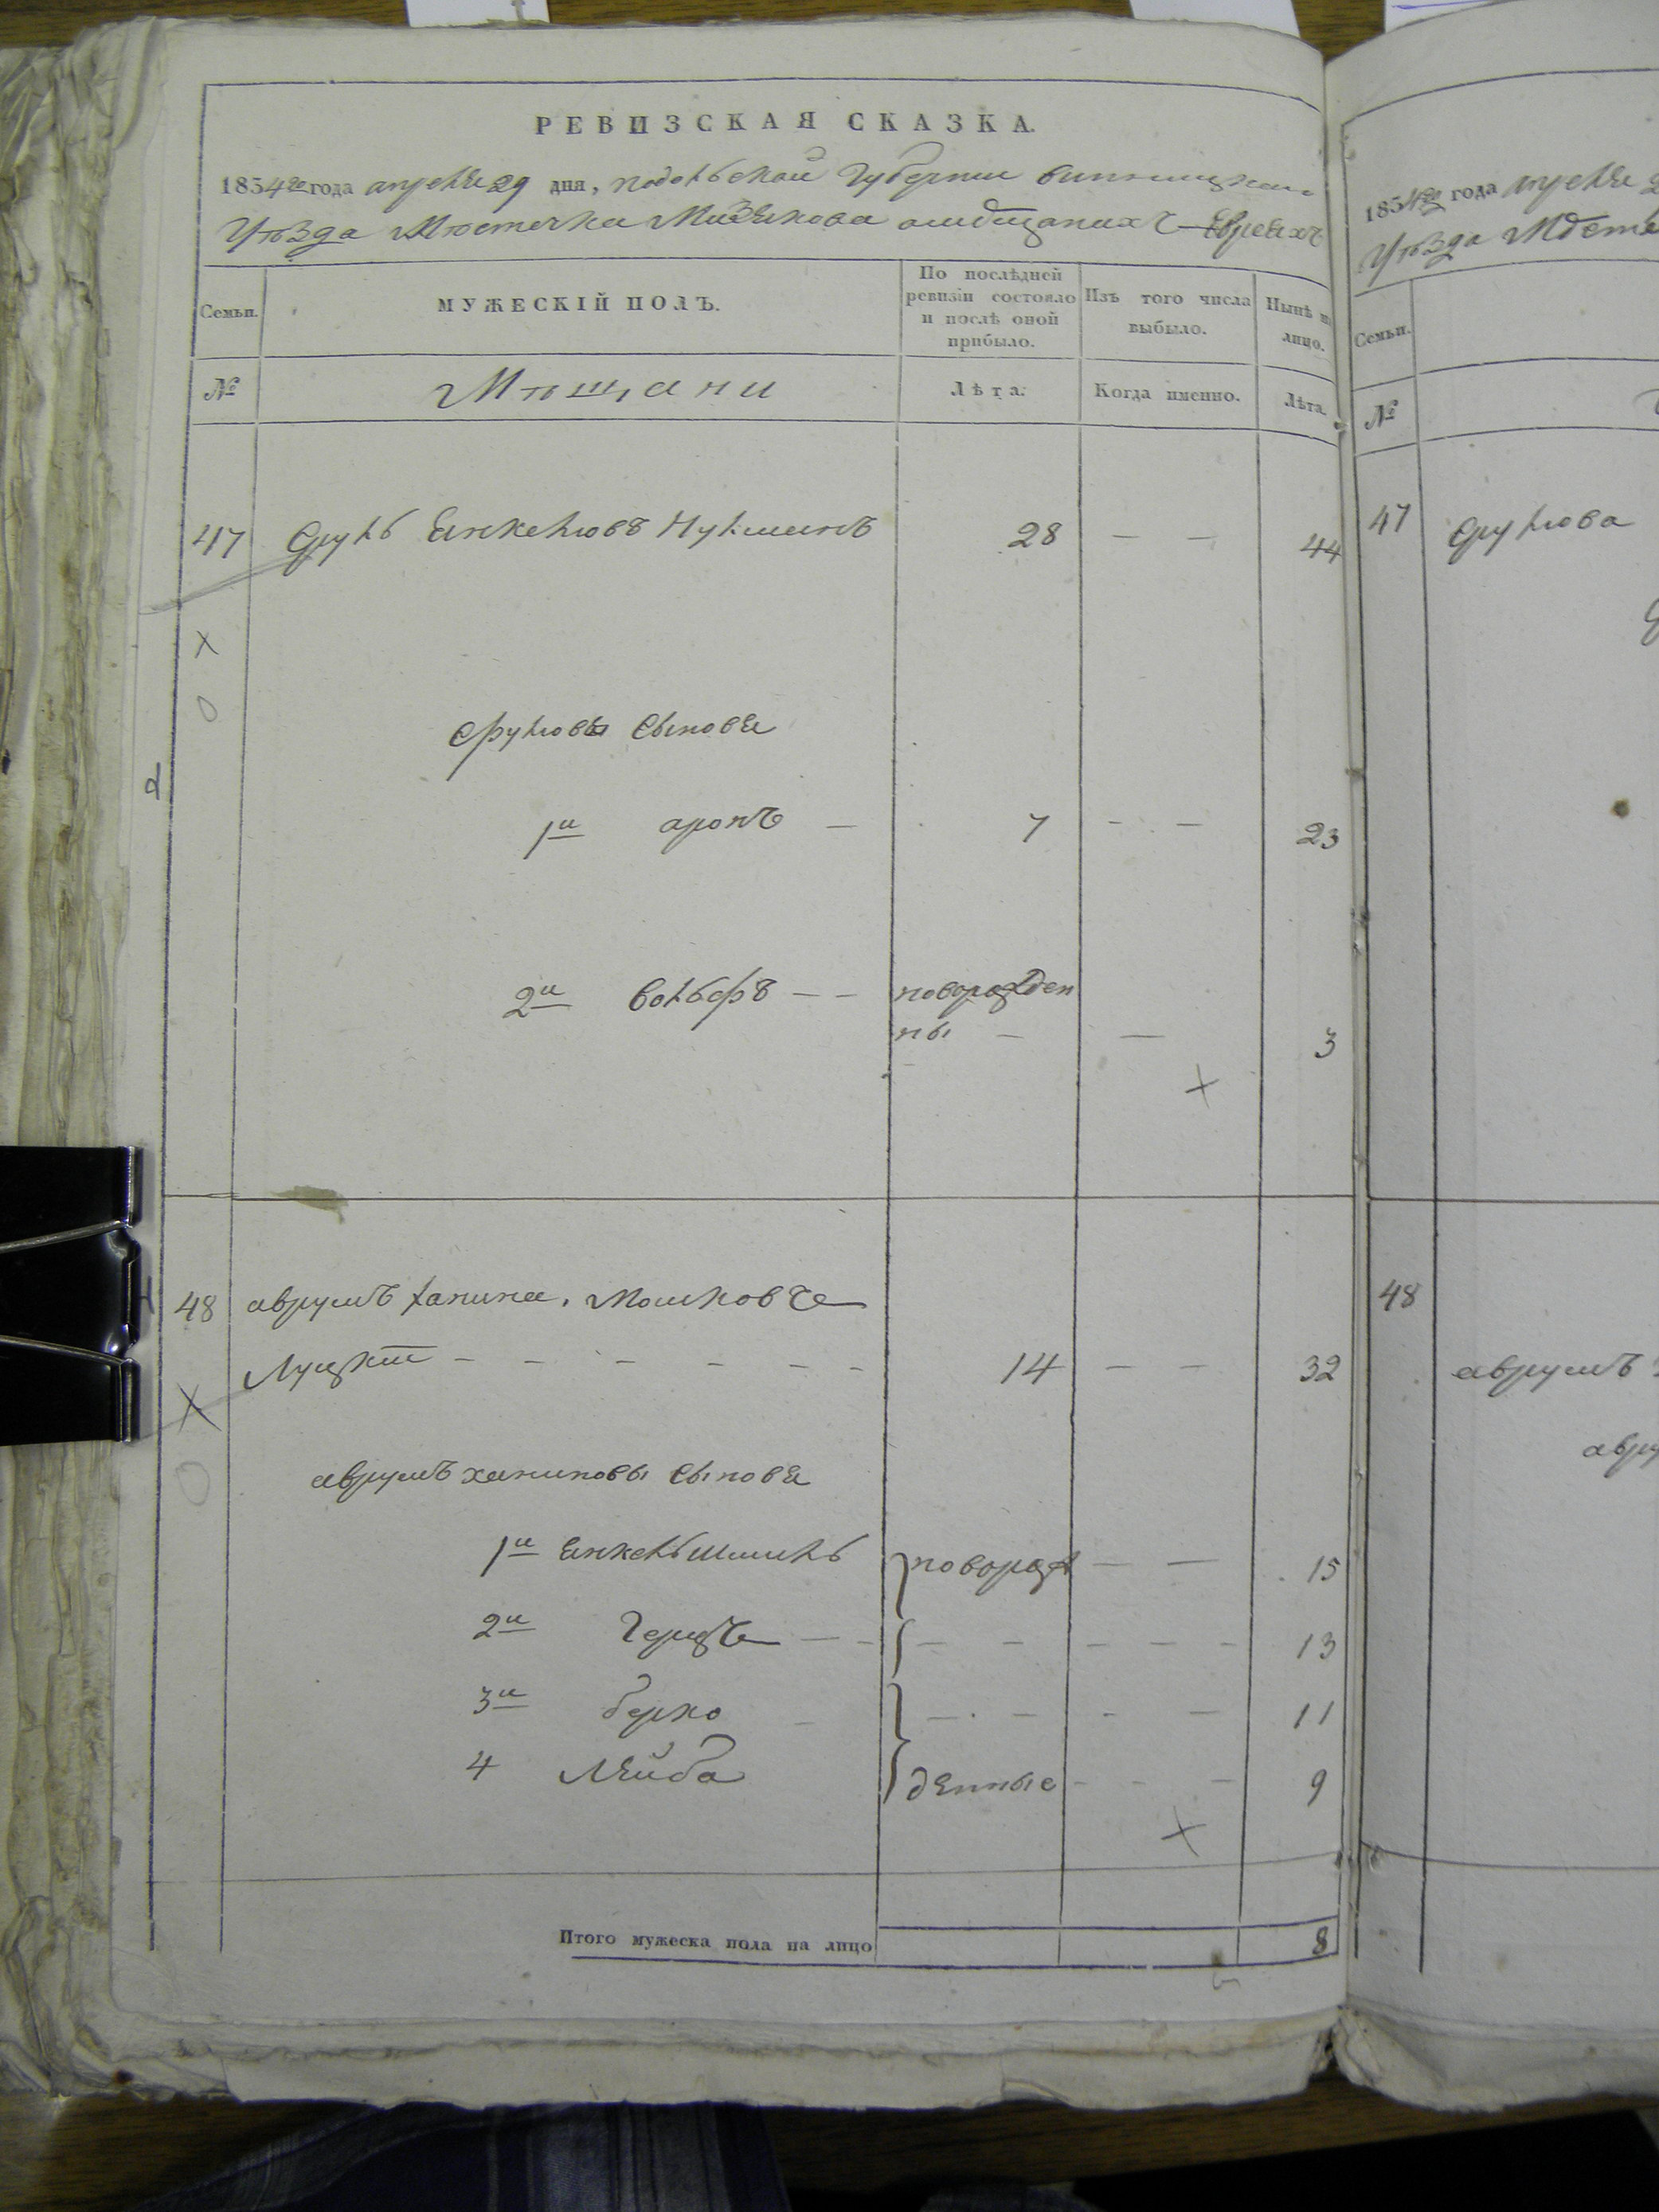 РЕВИЗСКАЯ СКАЗКА.
1854го года апреля 29 дня, подольской Губернии винницкаго
Уѣзда Мѣстечка Мизякова омѣщанахъ Евреяхъ
Семьи. МУЖЕСКІЙ ПОЛЪ. По послѣдней ревизіи состояло и послѣ оной прибыло. Изъ того числа выбыло. Нынѣ на лицо.
№ Мѣщани Лѣта. Когда именно. Лѣта.
47 Сруль Янкелювъ 28 — — 44
Срулювы Сыновя
1й аронъ — 7 — — 23
2й вольфъ — — новорожден
ны — — 3
48 аврумъ ханина, Мошковъ
Луцкій — — — — — — 14 — — 32
аврумъ ханиновы Сыновя
1й Янкель Шмиль новорож — — 15
2й Герцъ — — — — — — — 13
3й берко — — — — — 11
4 Лейба денные — — 9
Итого мужеска пола на лицо 8
1854го года апреля 2
Уѣзда Мѣсте
Семьи.
№
47 Срулюва
48
аврумъ
авру